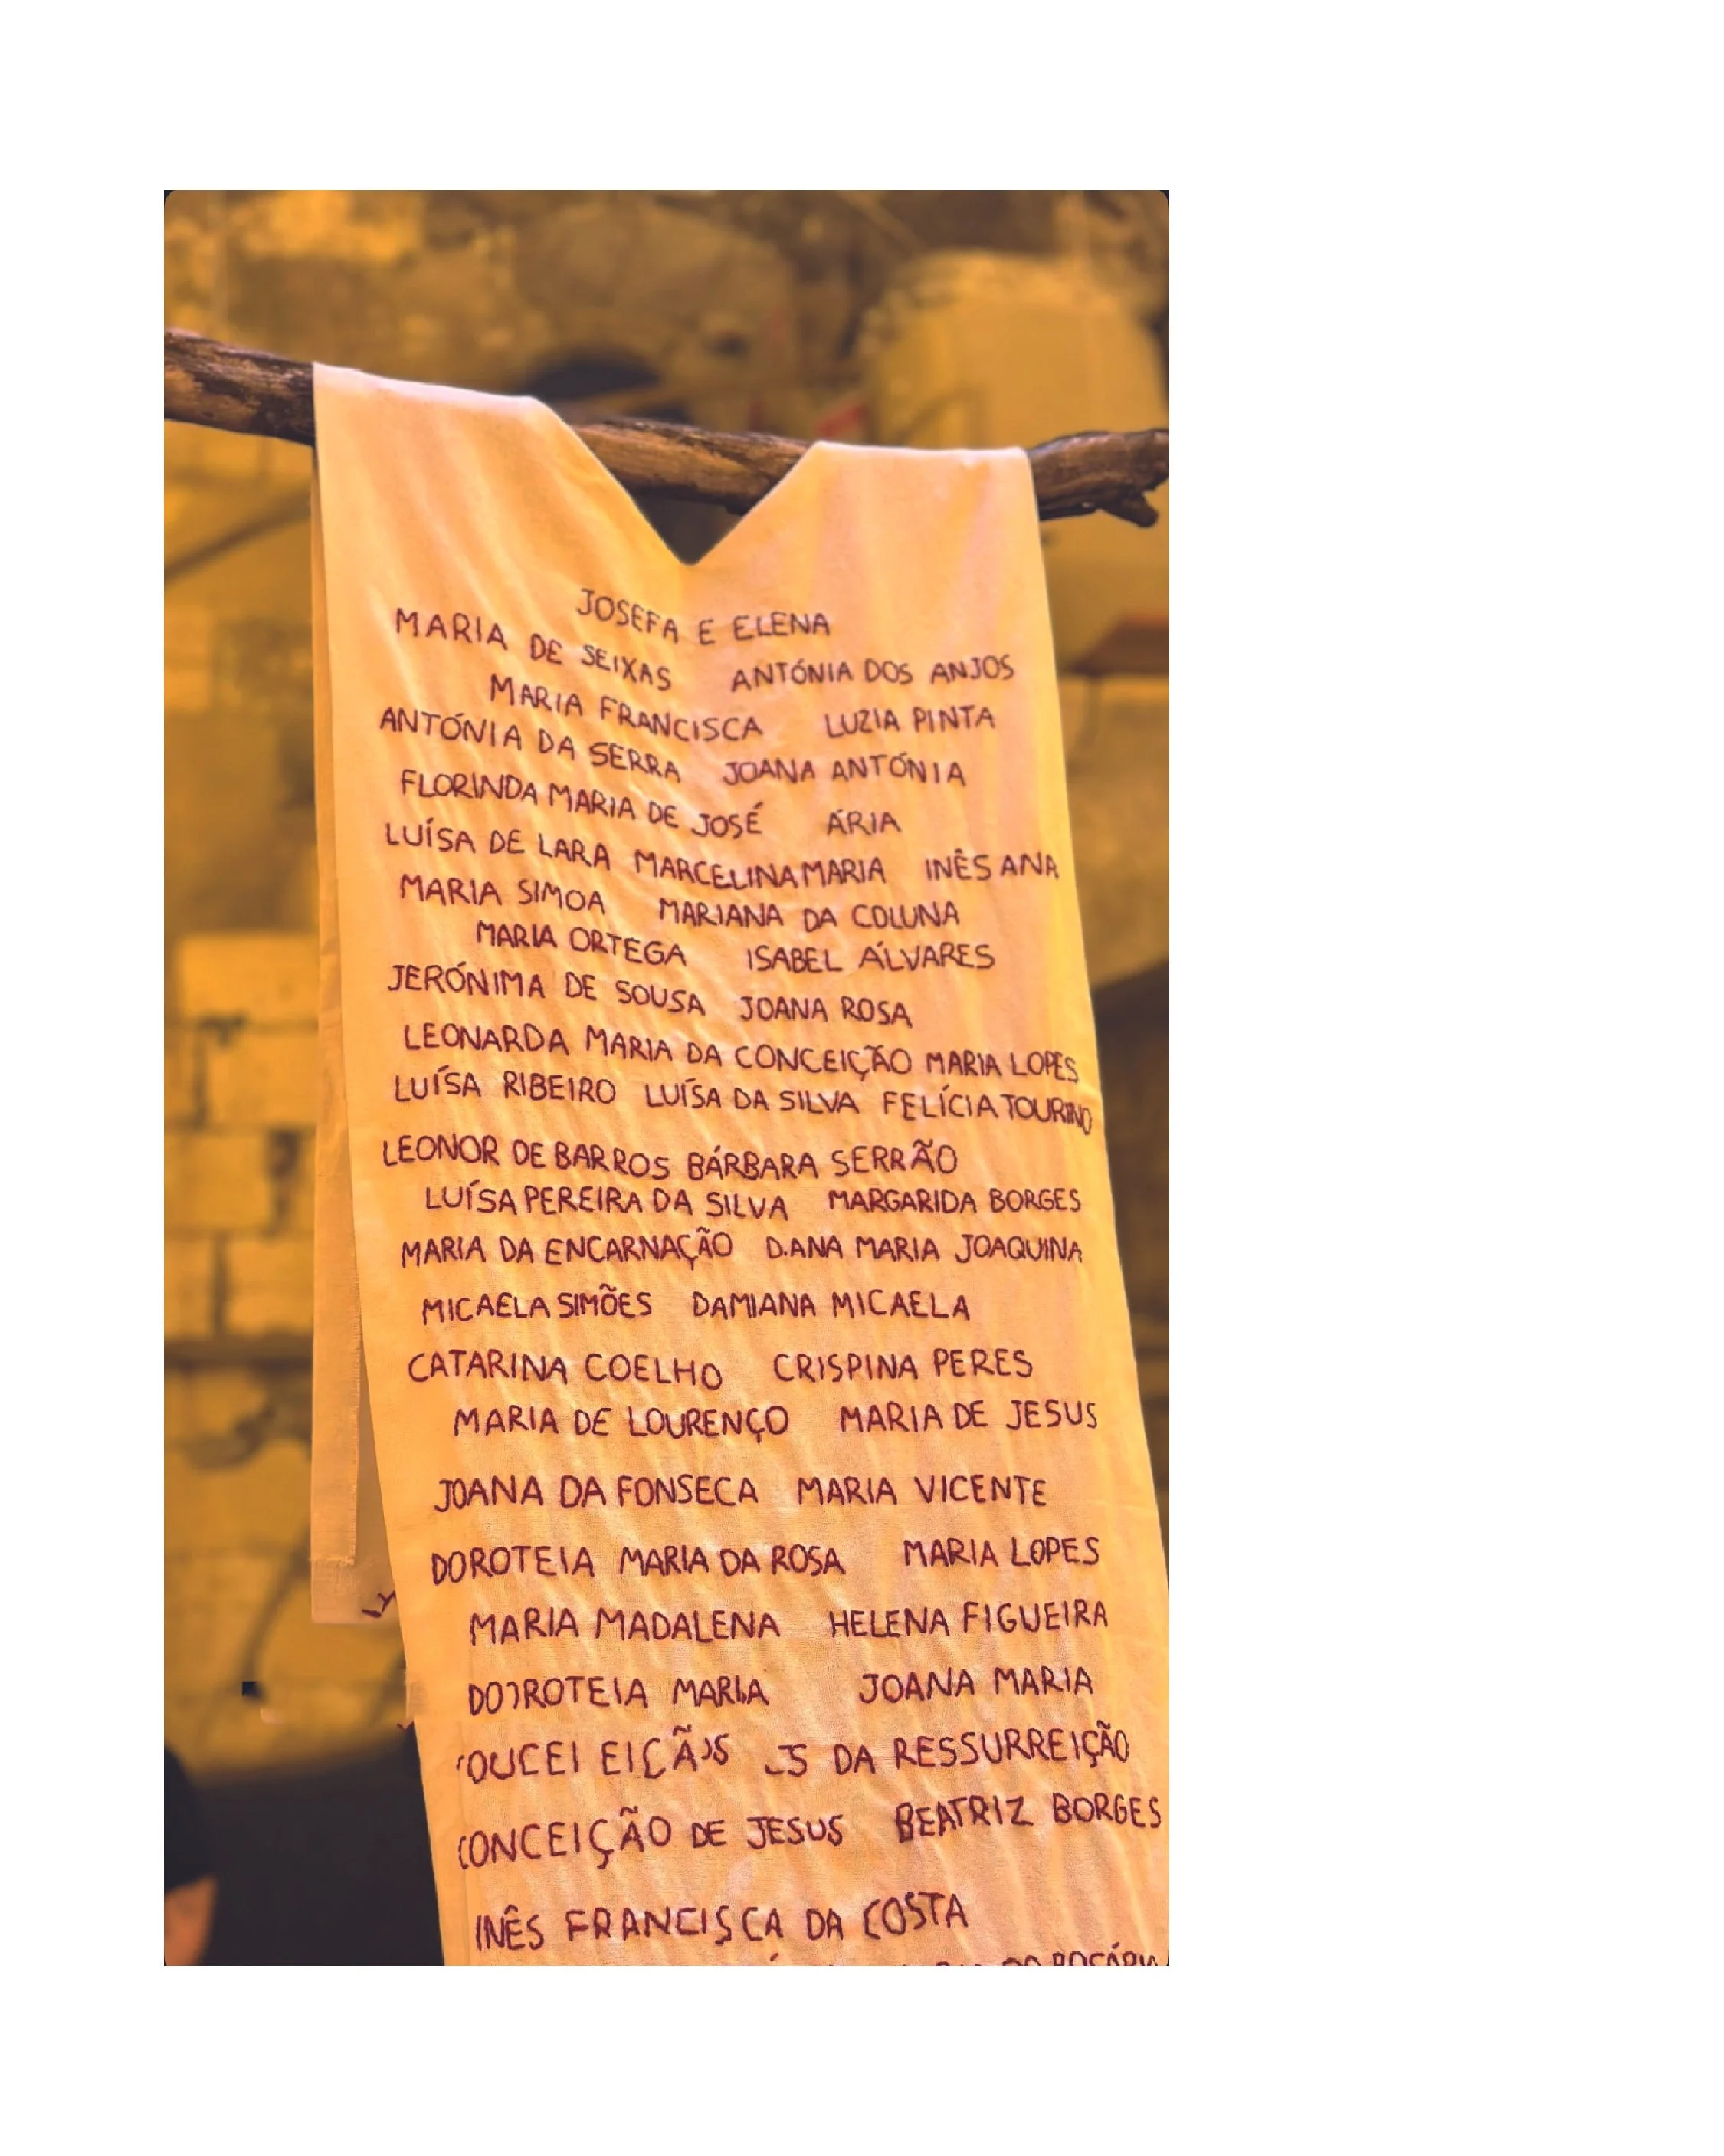 JOSEFA E ELENA
MARIA DE SEIXAS ANTÓNIA DOS ANJOS
MARIA FRANCISCA LUZIA PINTA
ANTÓNIA DA SERRA JOANA ANTÓNIA
FLORINDA MARIA DE JOSÉ ÁRIA
LUÍSA DE LARA MARCELINA MARIA INÊS ANA
MARIA SIMOA MARIANA DA COLUNA
MARIA ORTEGA ISABEL ÁLVARES
JERÓNIMA DE SOUSA JOANA ROSA
LEONARDA MARIA DA CONCEIÇÃO MARIA LOPES
LUÍSA RIBEIRO LUÍSA DA SILVA FELÍCIA TOURINO
LEONOR DE BARROS BÁRBARA SERRÃO
LUÍSA PEREIRA DA SILVA MARGARIDA BORGES
MARIA DA ENCARNAÇÃO D.ANA MARIA JOAQUINA
MICAELA SIMÕES DAMIANA MICAELA
CATARINA COELHO CRISPINA PERES
MARIA DE LOURENÇO MARIA DE JESUS
JOANA DA FONSECA MARIA VICENTE
DOROTEIA MARIA DA ROSA MARIA LOPES
MARIA MADALENA HELENA FIGUEIRA
MARIA JOANA MARIA
DA RESSURREIÇÃO
CONCEIÇÃO DE JESUS BEATRIZ BORGES
INÊS FRANCISCA DA COSTA